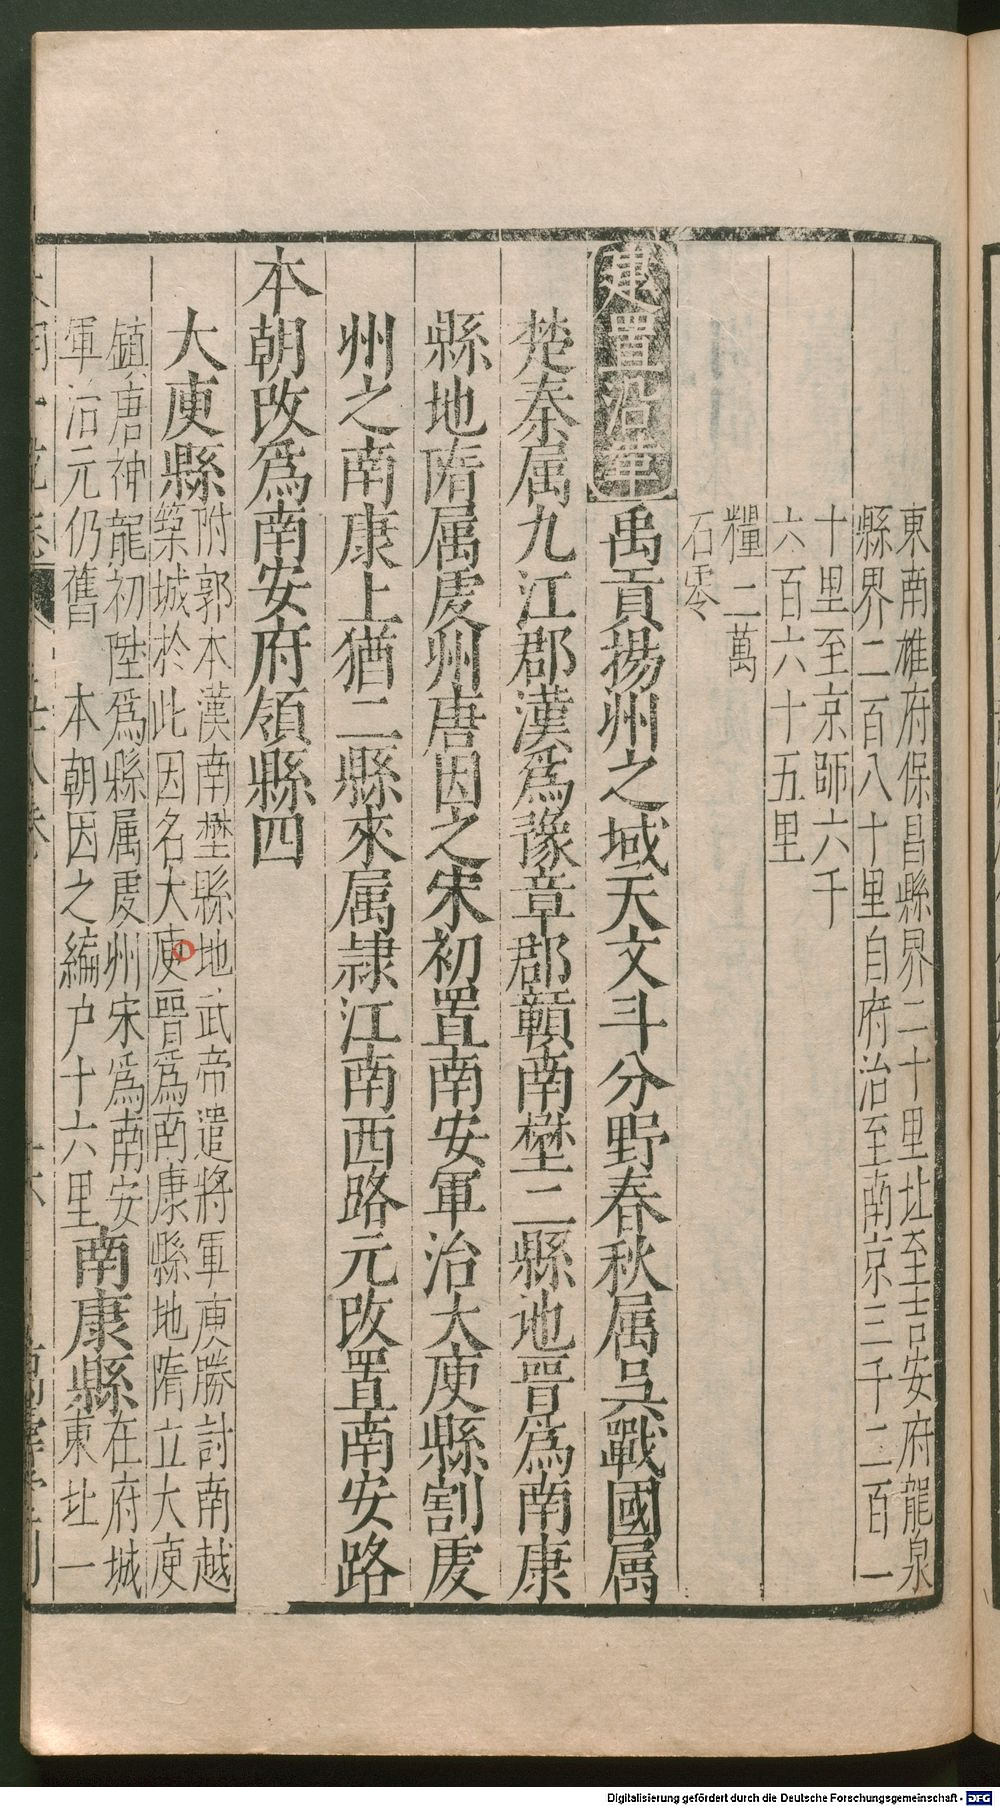 東南雄府保昌縣界二十里北至吉安府龍泉
縣界二百八十里自府治至南京三千二百一
十里至京師六千
六百六十五里
糧二萬
石零
建置沿革
禹貢揚州之域天文斗分野春秋属吴戰國属
楚秦属九江郡漢爲豫章郡贑南埜二縣地晉爲南康
縣地隋属䖍州唐因之宋初置南安軍治大庾縣割䖍
州之南康上猶二縣來属隷江南西路元改置南安路
本朝改爲南安府領縣四
大庾縣
附郭本漢南埜縣地武帝遣將軍庾勝討南越
築城於此因名大庾晉爲南康縣地隋立大庾
鎮唐神龍初陞爲縣属䖍州宋爲南安
軍治元仍舊 本朝因之編户十六里
南康縣
在府城
東北一
Digitalisierung gefördert durch die Deutsche Forschungsgemeinschaft - DFG